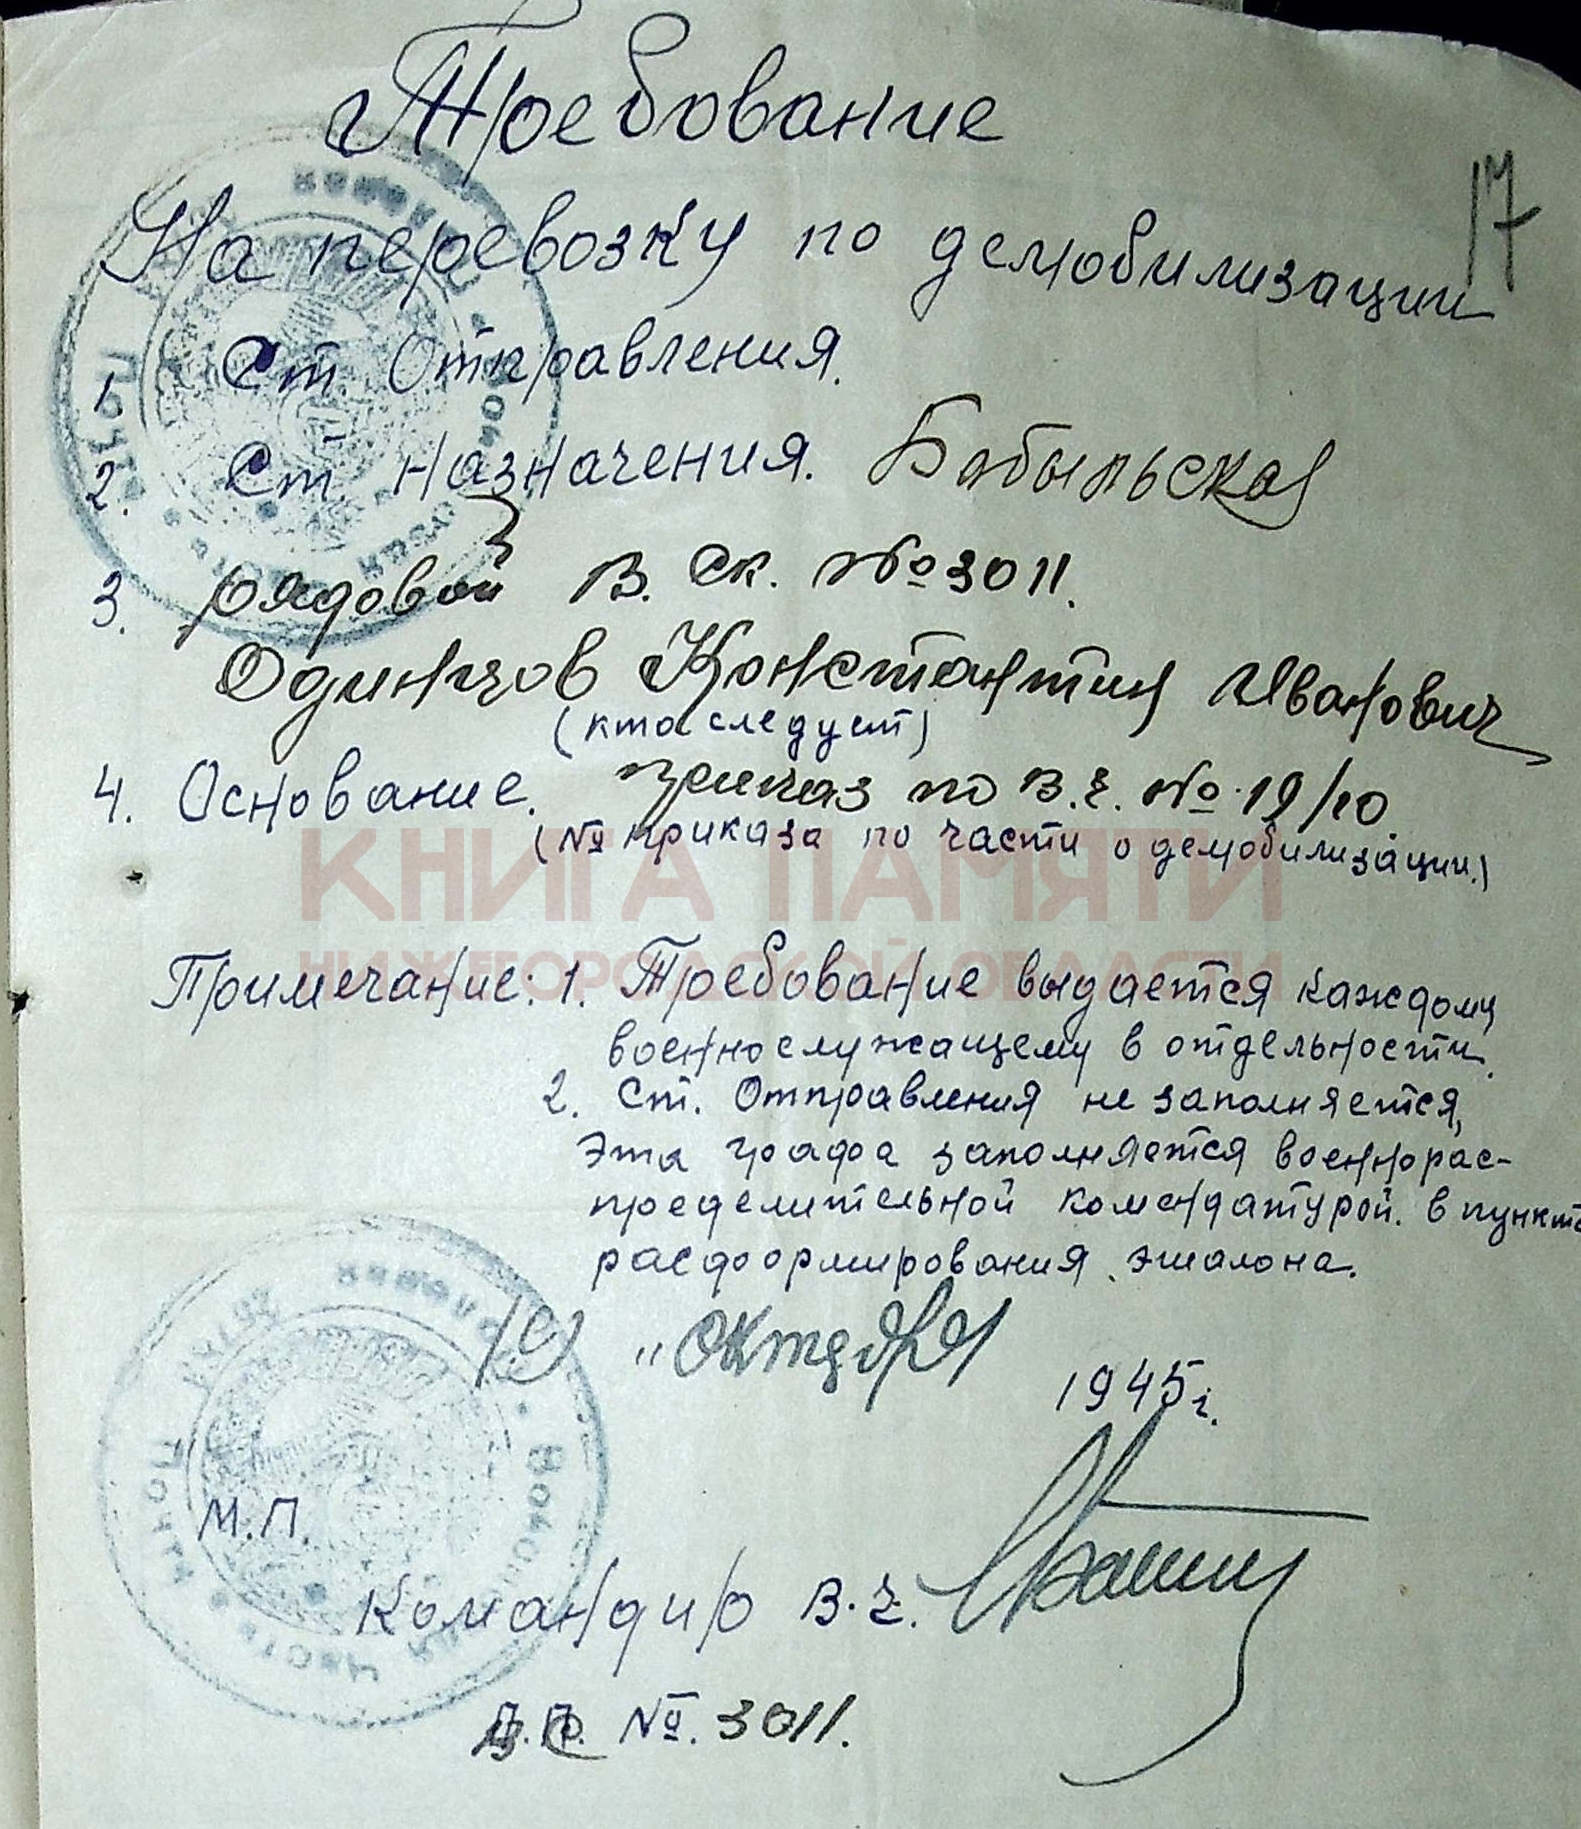 Требование
17
На перевозку по демобилизации
1. Ст. Отправления.
2. Ст. Назначения. Бобыльская
3. рядовой В. Ск. № 3011.
Одинцов Константин Иванович
(кто следует)
4. Основание. приказ по В.Ч. № 19/10.
(№ приказа по части о демобилизации.)
КНИГА ПАМЯТИ
НИЖЕГОРОДСКОЙ ОБЛАСТИ
Примечание: 1. Требование выдается каждому
военнослужащему в отдельности.
2. Ст. Отправления не заполняется,
Эта графа заполняется военнорас-
пределительной комендатурой. в пункте
расформирования эшалона.
"Октября
1945г.
М.П.
Командир В.Ч.
№. 3011.